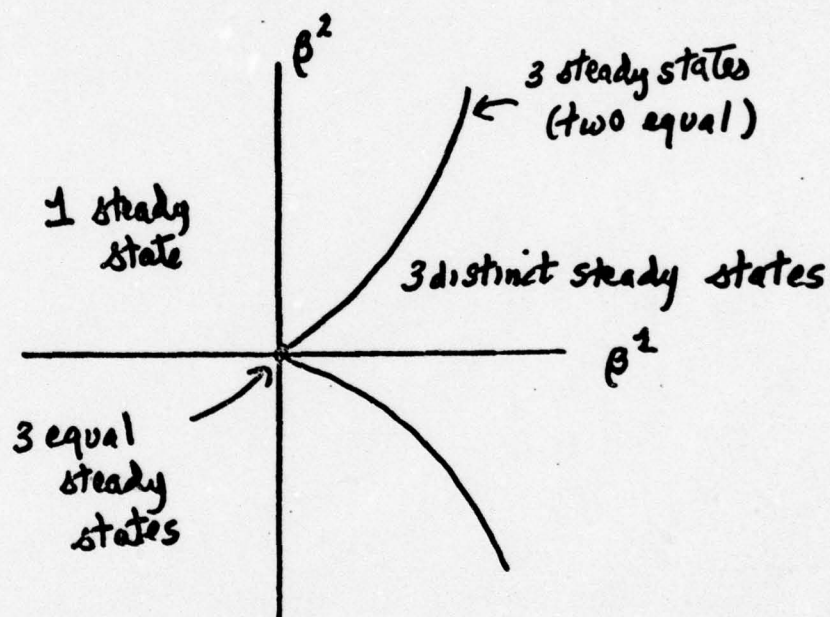 β²
3 steady states
(two equal)
1 steady
state
3 distinct steady states
β¹
3 equal
steady
states